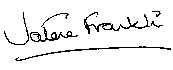 Valerie Frankli